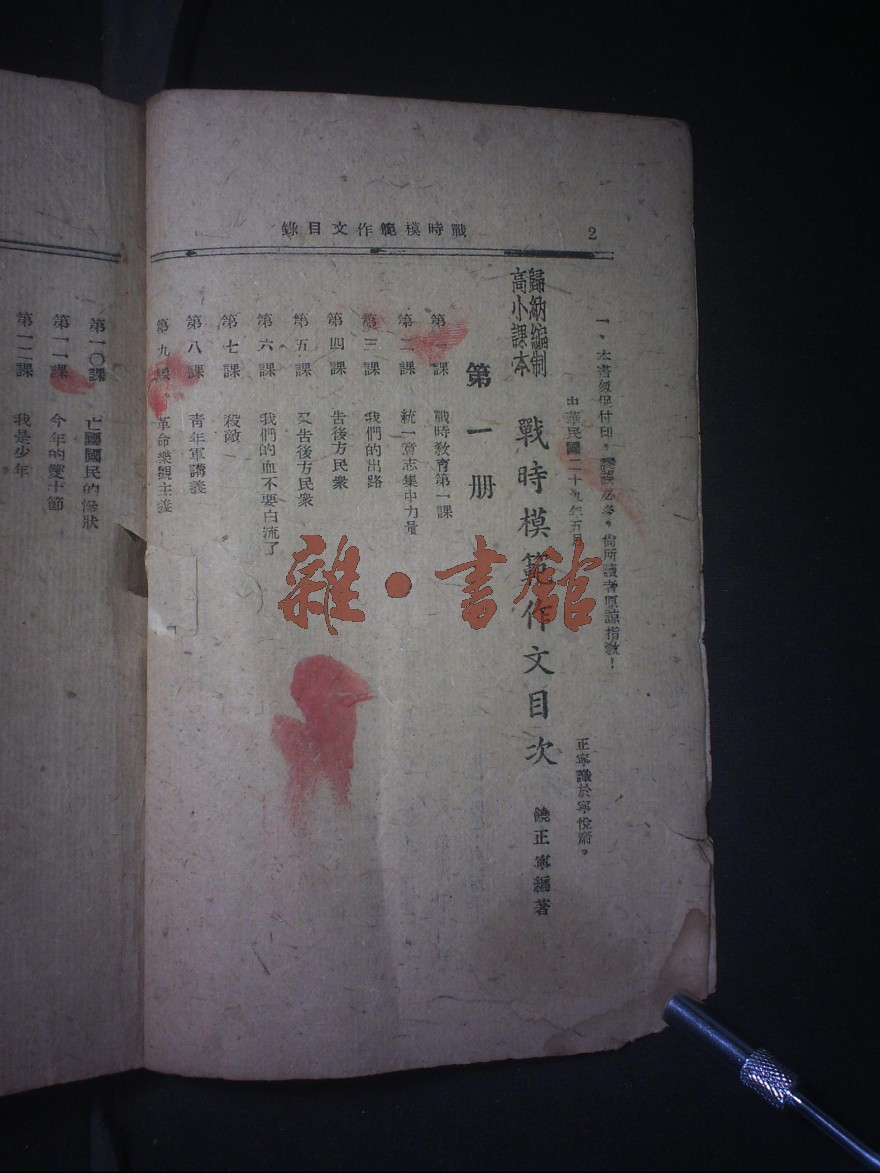 戰時模範作文目錄
2
一、本書級促付印，謬誤必多，尙祈讀者原諒指敎！
中華民國二十九年五月
正寧識於寧悅齋。
歸納編制
高小課本
戰時模範作文目次
饒正寧編著
第一册
第一課 戰時敎育第一課
第二課 統一意志集中力量
第三課 我們的出路
第四課 告後方民衆
第五課 又告後方民衆
第六課 我們的血不要白流了
第七課 殺敵
第八課 靑年軍講義
第九課 革命樂觀主義
第一〇課 亡國國民的慘狀
第一一課 今年的雙十節
第一二課 我是少年
雜·書館